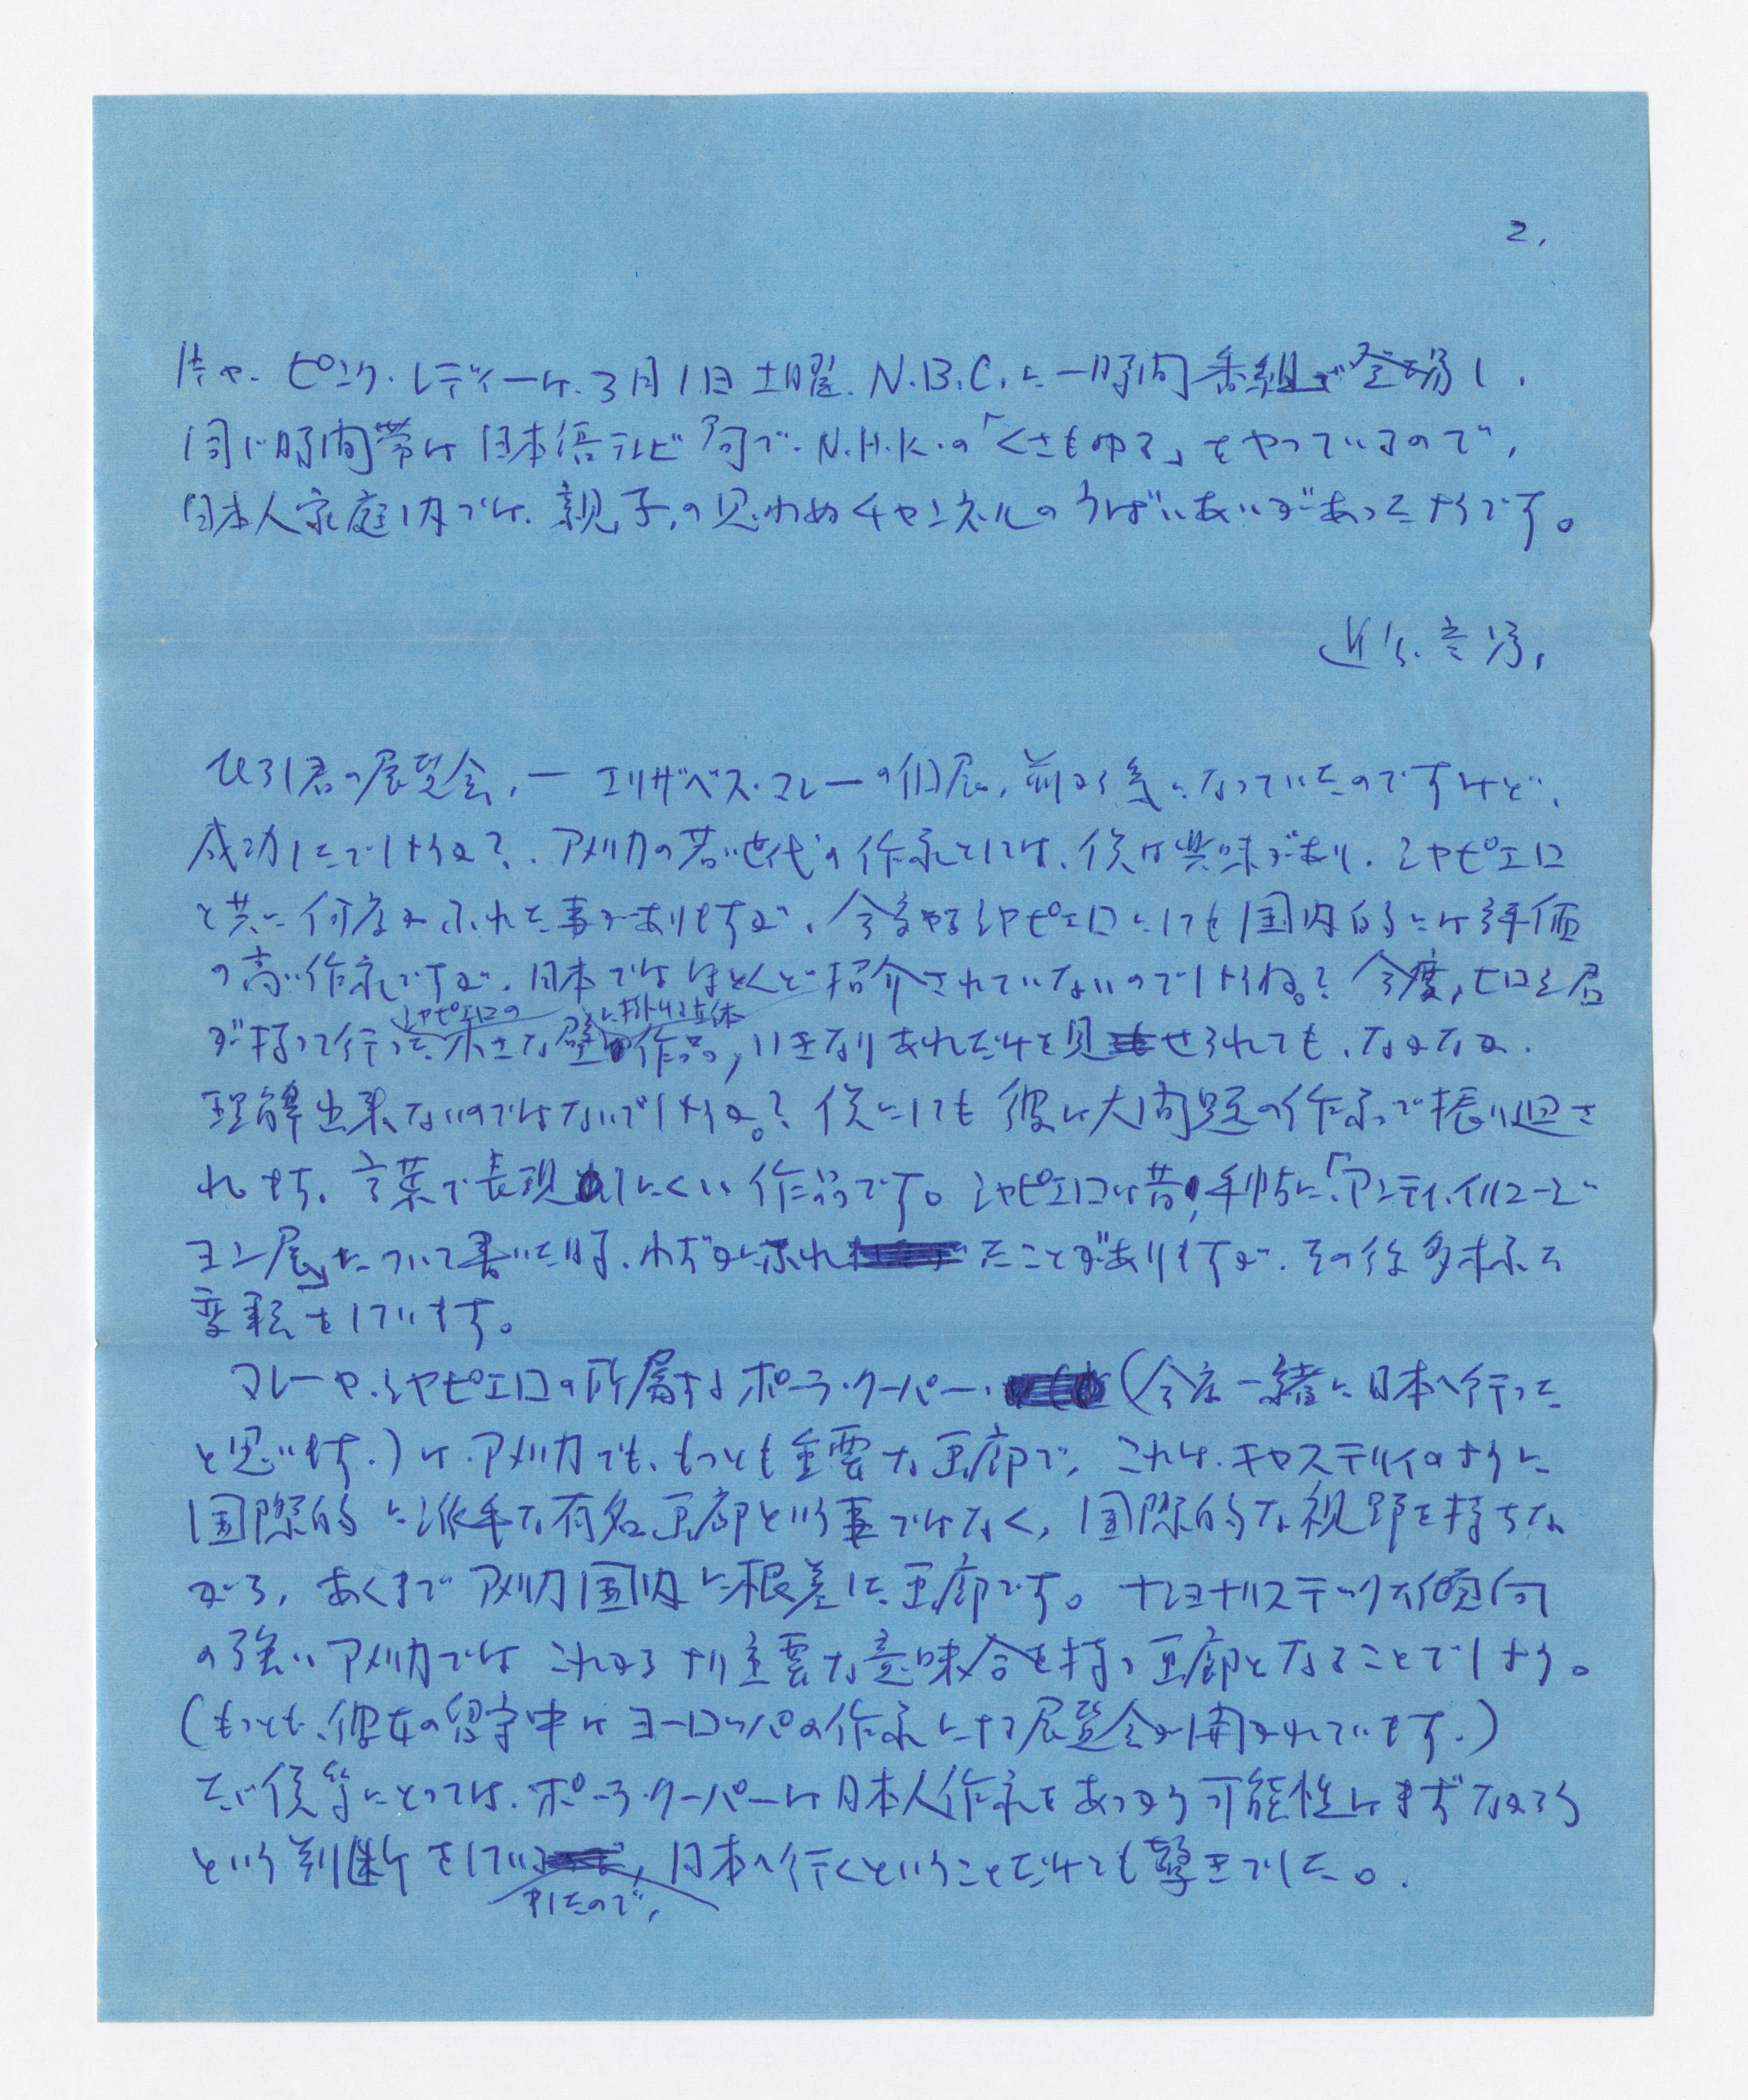 2.
ピンク・レディーは、3月1日土曜、N.B.C.に一時間番組で登場し、
同じ時間帯は日本語テレビ局で、N.H.K.の「くさもゆる」をやっているので、
日本人家庭内では、親子の思わぬチャンネルのうばいあいがあったようです。
近藤
君の展覧会、― エリザベス・マレーの個展、前から気になっていたのですけど、
成功したでしょうか?、アメリカの若い世代の作家としては、僕は興味があり、シャピエロ
と共に何度かふれた事がありますが、シャピエロにしても国内的には評価
の高い作家ですが、日本ではほとんど紹介されていないのでしょうね。? 今度、ヒロミ君
が持って行ったシャピエロの小さな壁に掛ける立体作品、いきなりあれだけを見せられても、なかなか、
理解出来ないのではないでしょうか。? 僕にしても彼は大問題の作家で振り廻さ
れます、言葉で表現しにくい作品です。シャピエロは昔、手帖に「アンティ・イリュージ
ョン展」について書いた時、わずかにふれたことがありますが、その後多くの
変転をしています。
マレーや、シャピエロの所属するポーラ・クーパー、(今度一緒に日本へ行った
と思います。)は、アメリカでも、もっとも重要な画廊で、これは、キャステリィのように
国際的に派手な有名画廊という事ではなく、国際的な視野を持ちな
がら、あくまでアメリカ国内に根差した画廊です。ナショナリスティックな傾向
の強いアメリカではこれからより重要な意味合を持つ画廊となることでしょう。
(もっとも、彼女の留守中はヨーロッパの作家による展覧会が開かれています。)
ただ僕等にとっては、ポーラ・クーパーは日本人作家をあつかう可能性はまずなかろう
という判断をしていましたので、日本へ行くということだけでも驚きでした。